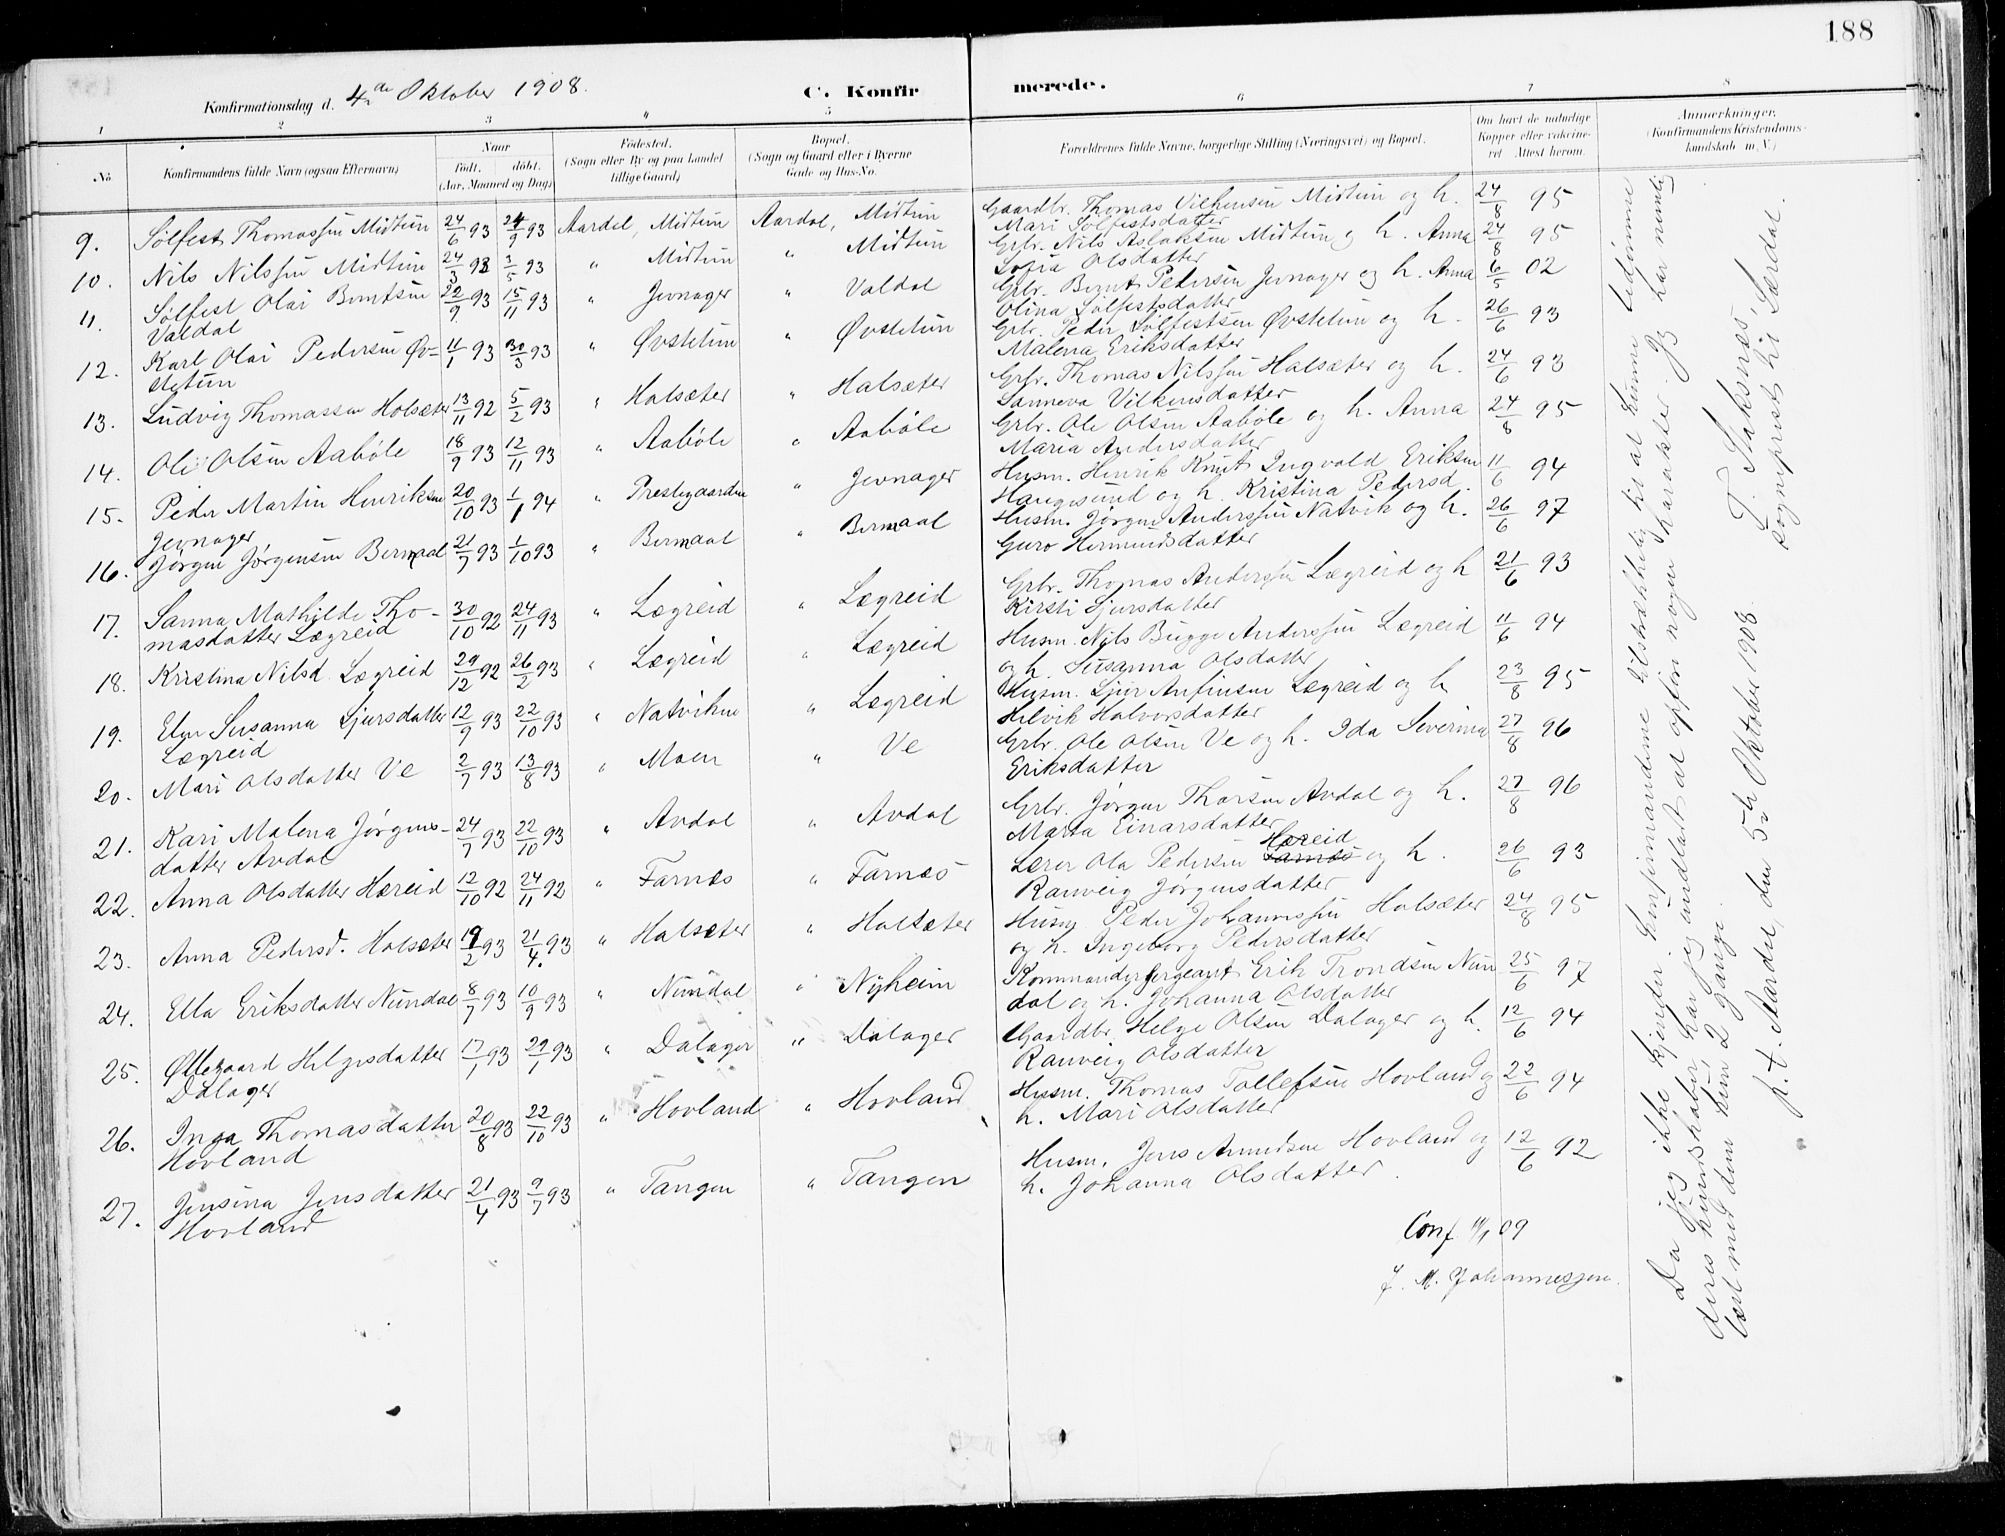 188
Konfirmationsdag d. 4de Oktober 1908. C. Konfirmerede.
1 2 3 4 5 6 7 8
No Konfirmandens fulde Navn (ogsaa Efternavn) Naar födt. döbt. (Aar, Maaned og Dag) Födested. (Sogn eller By og paa Landet tillige Gaard) Bopæl. (Sogn og Gaard eller i Byerne Gade og Hus-No. Forældrenes fulde Navne, borgerlige Stilling (Næringsvei) og Bopæl. Om havt de naturlige Kopper eller vakcineret Attest herom. Anmerkninger. (Konfirmandens Kristendomskundskab m.V.)
9. Sølfest Thomassen Midtun 24/6 93 24/9 93 Aardal, Midtun Aardal, Midtun Gaardbr. Thomas Vilhensen Midtun og h. 24/8 95
Mari Sølfestsdatter
10. Nils Nilssen Midtun 24/3 93 3/5 93 " Midtun " Midtun Grbr. Nils Aslaksen Midtun og h. Anna 24/8 95
Sofia Olsdatter
11. Sølfest Olai Berntsen 22/9 93 15/11 93 " Jevnager " Valdal Grbr. Bernt Pedersen Jevnager og h. Anna 6/5 02
Valdal Olina Sølfestsdatter
12. Karl Olai Pedersen Øv= 11/1 93 30/3 93 " Øvstetun " Øvstetun Grbr. Peder Sølfestsen Øvstetun og h. 26/6 93
stetun Malena Eriksdatter
13. Ludvig Thomassen Holsæter 13/11 92 5/2 93 " Holsæter " Holsæter Grbr. Thomas Nilssen Halsæter og h. 24/6 93
Sanneva Vilkensdatter
14. Ole Olsen Aabøle 18/9 93 12/11 93 " Aabøle " Aabøle Grbr. Ole Olsen Aabøle og h. Anna 24/8 95
Maria Andersdatter
15. Peder Martin Henriksen 20/10 93 1/1 94 " Prestegaarden " Jevnager Husm. Henrik Knut Ingvald Eriksen 11/6 94
Jevnager Haugesund og h. Kristina Pedersd.
16. Jørgen Jørgensen Bermaal 21/7 93 1/10 93 " Bermaal " Bermaal Husm. Jørgen Anderssen Natvik og h. 26/6 97
Guro Hermundsdatter
17. Sanna Mathilde Tho- 30/10 92 24/11 93 " Lægreid " Lægreid Grbr. Thomas Anderssen Lægreid og h 21/6 93
masdatter Lægreid Kirsti Sjursdatter
18. Kristina Nilsd. Lægreid 29/12 92 26/2 93 " Lægreid " Lægreid Husm. Nils Bugge Anderssen Lægreid 11/6 94
og h. Susanna Olsdatter
19. Elen Susanna Sjursdatter 12/9 93 22/10 93 " Natviken " Lægreid Husm. Sjur Anfinsen Lægreid og h 23/8 95
Lægreid Helvik Halvorsdatter
20. Mari Olsdatter Ve 2/7 93 13/8 93 " Moen " Ve Grbr. Ole Olsen Ve og h. Ida Severina 27/8 96
Eriksdatter
21. Kari Malena Jørgens- 24/7 93 22/10 93 " Avdal " Avdal Grbr. Jørgen Thorsen Avdal og h. 27/8 96
datter Avdal Marta Einarsdatter
22. Anna Olsdatter Hæreid 12/10 92 24/11 92 " Farnæs " Farnæs Lærer Ola Pedersen Farnæs Hæreid og h. 26/6 93
Ranveig Jørgensdatter
23. Anna Pedersd. Holsæter 19/2 93 21/4 93 " Halsæter " Holsæter Husm. Peder Johannessen Holsæter 24/8 95
og h. Ingeborg Pedersdatter
24. Ella Eriksdatter Nundal 8/7 93 10/9 93 " Nundal " Nyheim Kommandersergeant Erik Trondsen Nun 25/6 97
dal og h. Johanna Olsdatter
25. Øllegaard Helgesdatter 17/1 93 29/1 93 " Dalager " Dalager Gaardbr. Helge Olsen Dalager og h. 12/6 94
Dalager Ranveig Olsdatter
26. Inga Thomasdatter 20/8 93 22/10 93 " Hovland " Hovland Husm. Thomas Tollefsen Hovland og 22/6 94
Hovland h. Mari Olsdatter
27. Jensina Jensdatter 21/4 93 9/7 93 " Tangen " Tangen Husm. Jens Amundsen Hovland og 12/6 92
Hovland h. Johanna Olsdatter
Conf 11/1 09
J. M. Johannessen
Da jeg ikke kjender konfirmanderne tilstrækkelig til at kunne bedømme
deres kundskaber, har jeg undladt at opføre nogen karakter. Jeg har nemlig
læst med dem kun 2 gange.
p.t. Aardal, den 5te Oktober 1908. T. Saksnæs,
sogneprest til Lærdal.